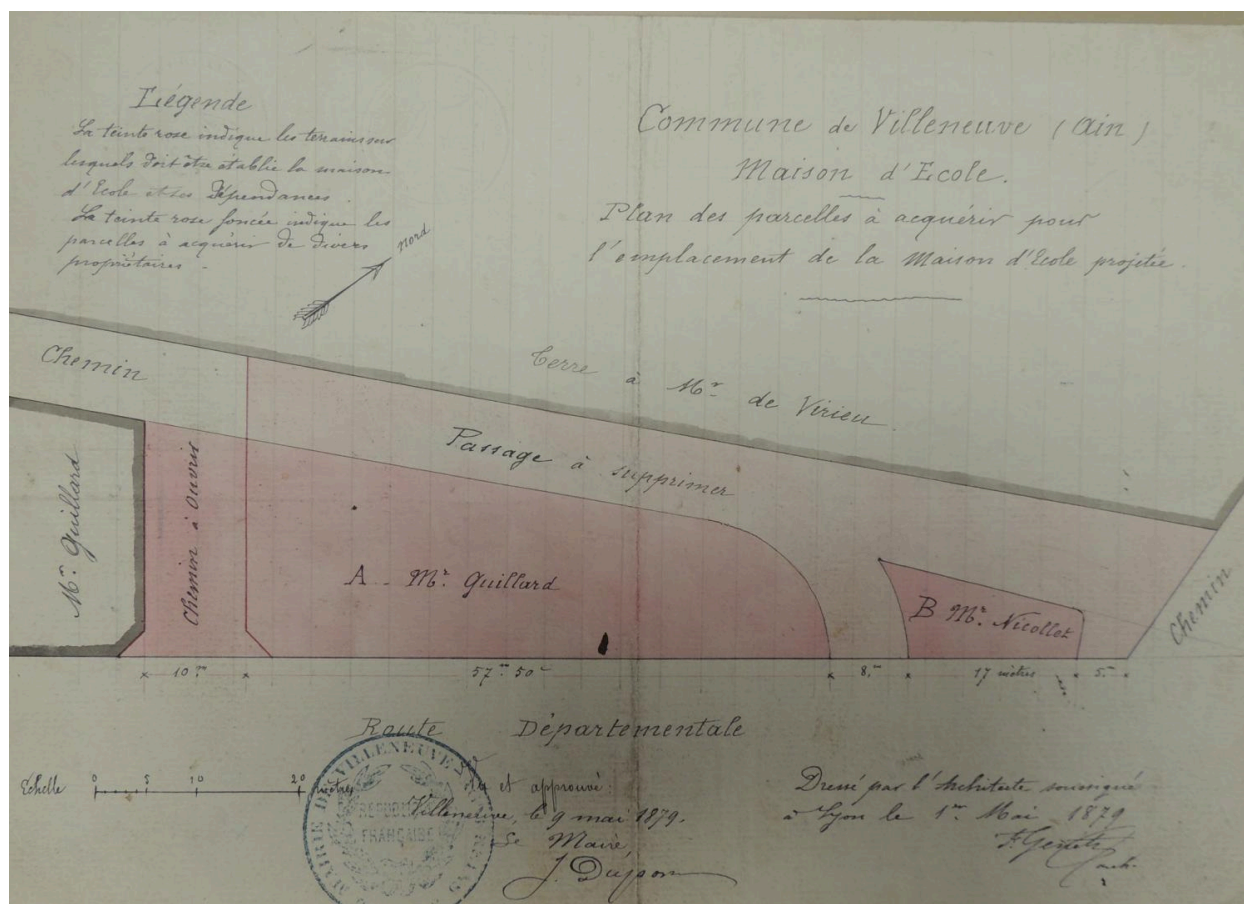 Légende
La teinte rose indique les terrains sur
lesquels doit être établie la maison
d'Ecole et ses Dépendances.
La teinte rose foncée indique les
parcelles à acquérir de divers
propriétaires.
Nord
Commune de Villeneuve (Ain)
Maison d'Ecole.
Plan des parcelles à acquérir pour
l'emplacement de la Maison d'Ecole projetée.
Chemin
Terre à Mr. de Virieu.
Passage à supprimer
Mr. Guillard
Chemin à Ouvrir
A Mr. Guillard
B Mr. Nicollet
Chemin
10 m
57 m 50 c
8 m
17 mètres
5 m
Route Départementale
Echelle 0 5 10 20 mètres
MAIRIE DE VILLENEUVE
FRANÇAISE
Vu et approuvé:
Villeneuve, le 9 mai 1879.
Le Maire,
Dressé par l'Architecte soussigné
à Lyon le 1er. Mai 1879